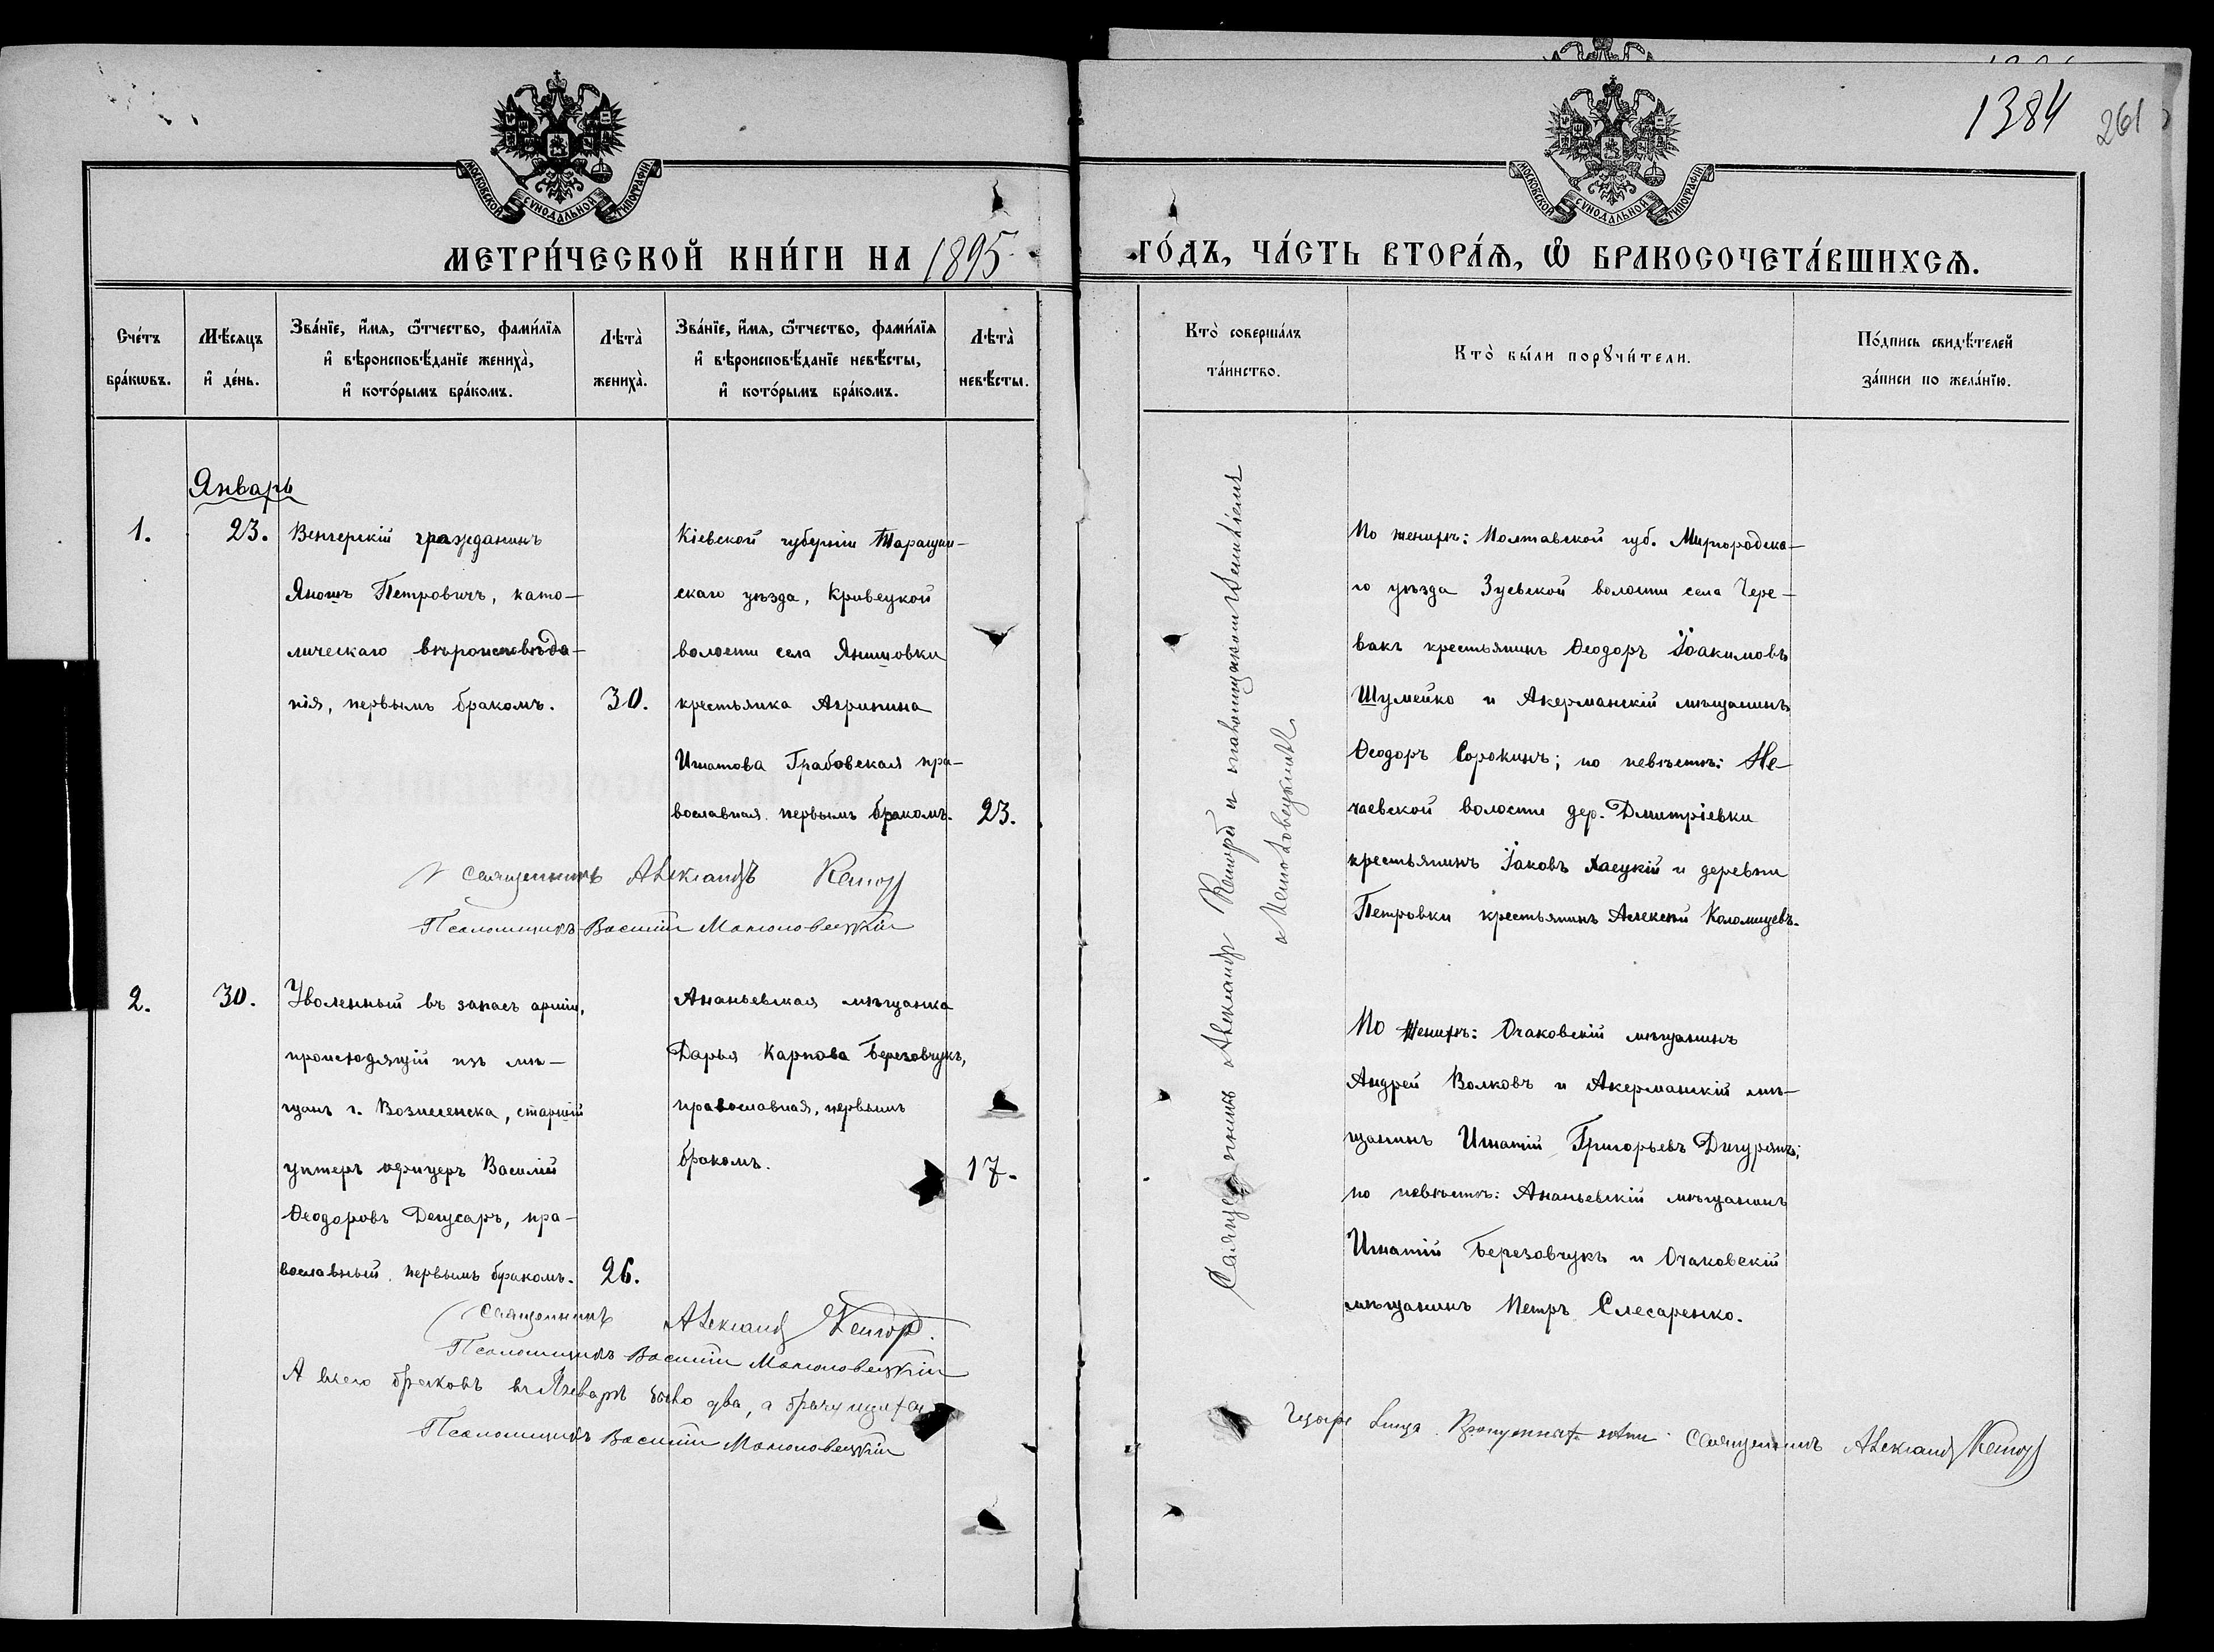 1384
261
МОСКОВСКОЙ СѴНОДАЛЬНОЙ ТИПОГРАФІИ
МОСКОВСКОЙ СѴНОДАЛЬНОЙ ТИПОГРАФІИ
МЕТРИ́ЧЕСКОЙ КНИ́ГИ НА 1895
ГО́ДЪ, ЧА́СТЬ ВТОРА́Ѧ, Ѡ҆ БРАКОСОЧЕТА́ВШИХСѦ.
Сче́тъ бра́кѡвъ.
Мѣ́сяцъ и҆ де́нь.
Зва́нїе, и҆́мѧ, ѻ҆́тчество, фами́лїѧ
и҆ вѣроисповѣ́данїе жениха̀,
и҆ кото́рымъ бра́комъ.
Лѣта̀ жениха̀.
Зва́нїе, и҆́мѧ, ѻ҆́тчество, фами́лїѧ
и҆ вѣроисповѣ́данїе невѣ́сты,
и҆ кото́рымъ бра́комъ.
Лѣта̀ невѣ́сты.
Кто̀ соверша́лъ
та́инство.
Кто̀ бы́ли порꙋчи́тели.
По́дпись свидѣ́телей
за́писи по жела́нїю.
Январь
1.
23.
Венгерскій гражданинъ
Яношъ Петровичъ, като-
лическаго вѣроисповѣда-
нія, первымъ бракомъ.
30.
Кіевской губерніи Таращан-
скаго уѣзда, Кривецкой
волости села Янишовки
крестьянка Агрипина
Игнатова Грабовская пра-
вославная первымъ бракомъ.
23.
Священникъ Александръ
Псаломщикъ Василій
Священникъ Александръ и псаломщикъ
По женихѣ: Полтавской губ. Миргородска-
го уѣзда Зуевской волости села Чере-
вакъ крестьянинъ Ѳеодоръ Іоакимовъ
Шумейко и Акерманскій мѣщанинъ
Ѳеодоръ Сорокинъ; по невѣстѣ: Не-
чаевской волости дер. Дмитріевки
крестьянинъ Іаковъ и деревни
Петровки крестьянинъ Алексѣй Коломицевъ.
2.
30.
Уволенный въ запасъ арміи,
происходящій изъ мѣ-
щанъ г. Вознесенска, старшій
унтеръ офицеръ Василій
Ѳеодоровъ Дегусаръ, пра-
вославный первымъ бракомъ.
26.
Ананьевская мѣщанка
Дарья Карпова Березовчукъ,
православная, первымъ
бракомъ.
17.
По женихѣ: Очаковскій мѣщанинъ
Андрей Волковъ и Акерманскій мѣ-
щанинъ Игнатій Григорьевъ Дигурянъ;
по невѣстѣ: Ананьевскій мѣщанинъ
Игнатій Березовчукъ и Очаковскій
мѣщанинъ Петръ Слесаренко.
Священникъ Александръ
Псаломщикъ Василій
А всего браковъ въ Январѣ было два, а брачущихся
четыре лица. Священникъ Александръ
Псаломщикъ Василій